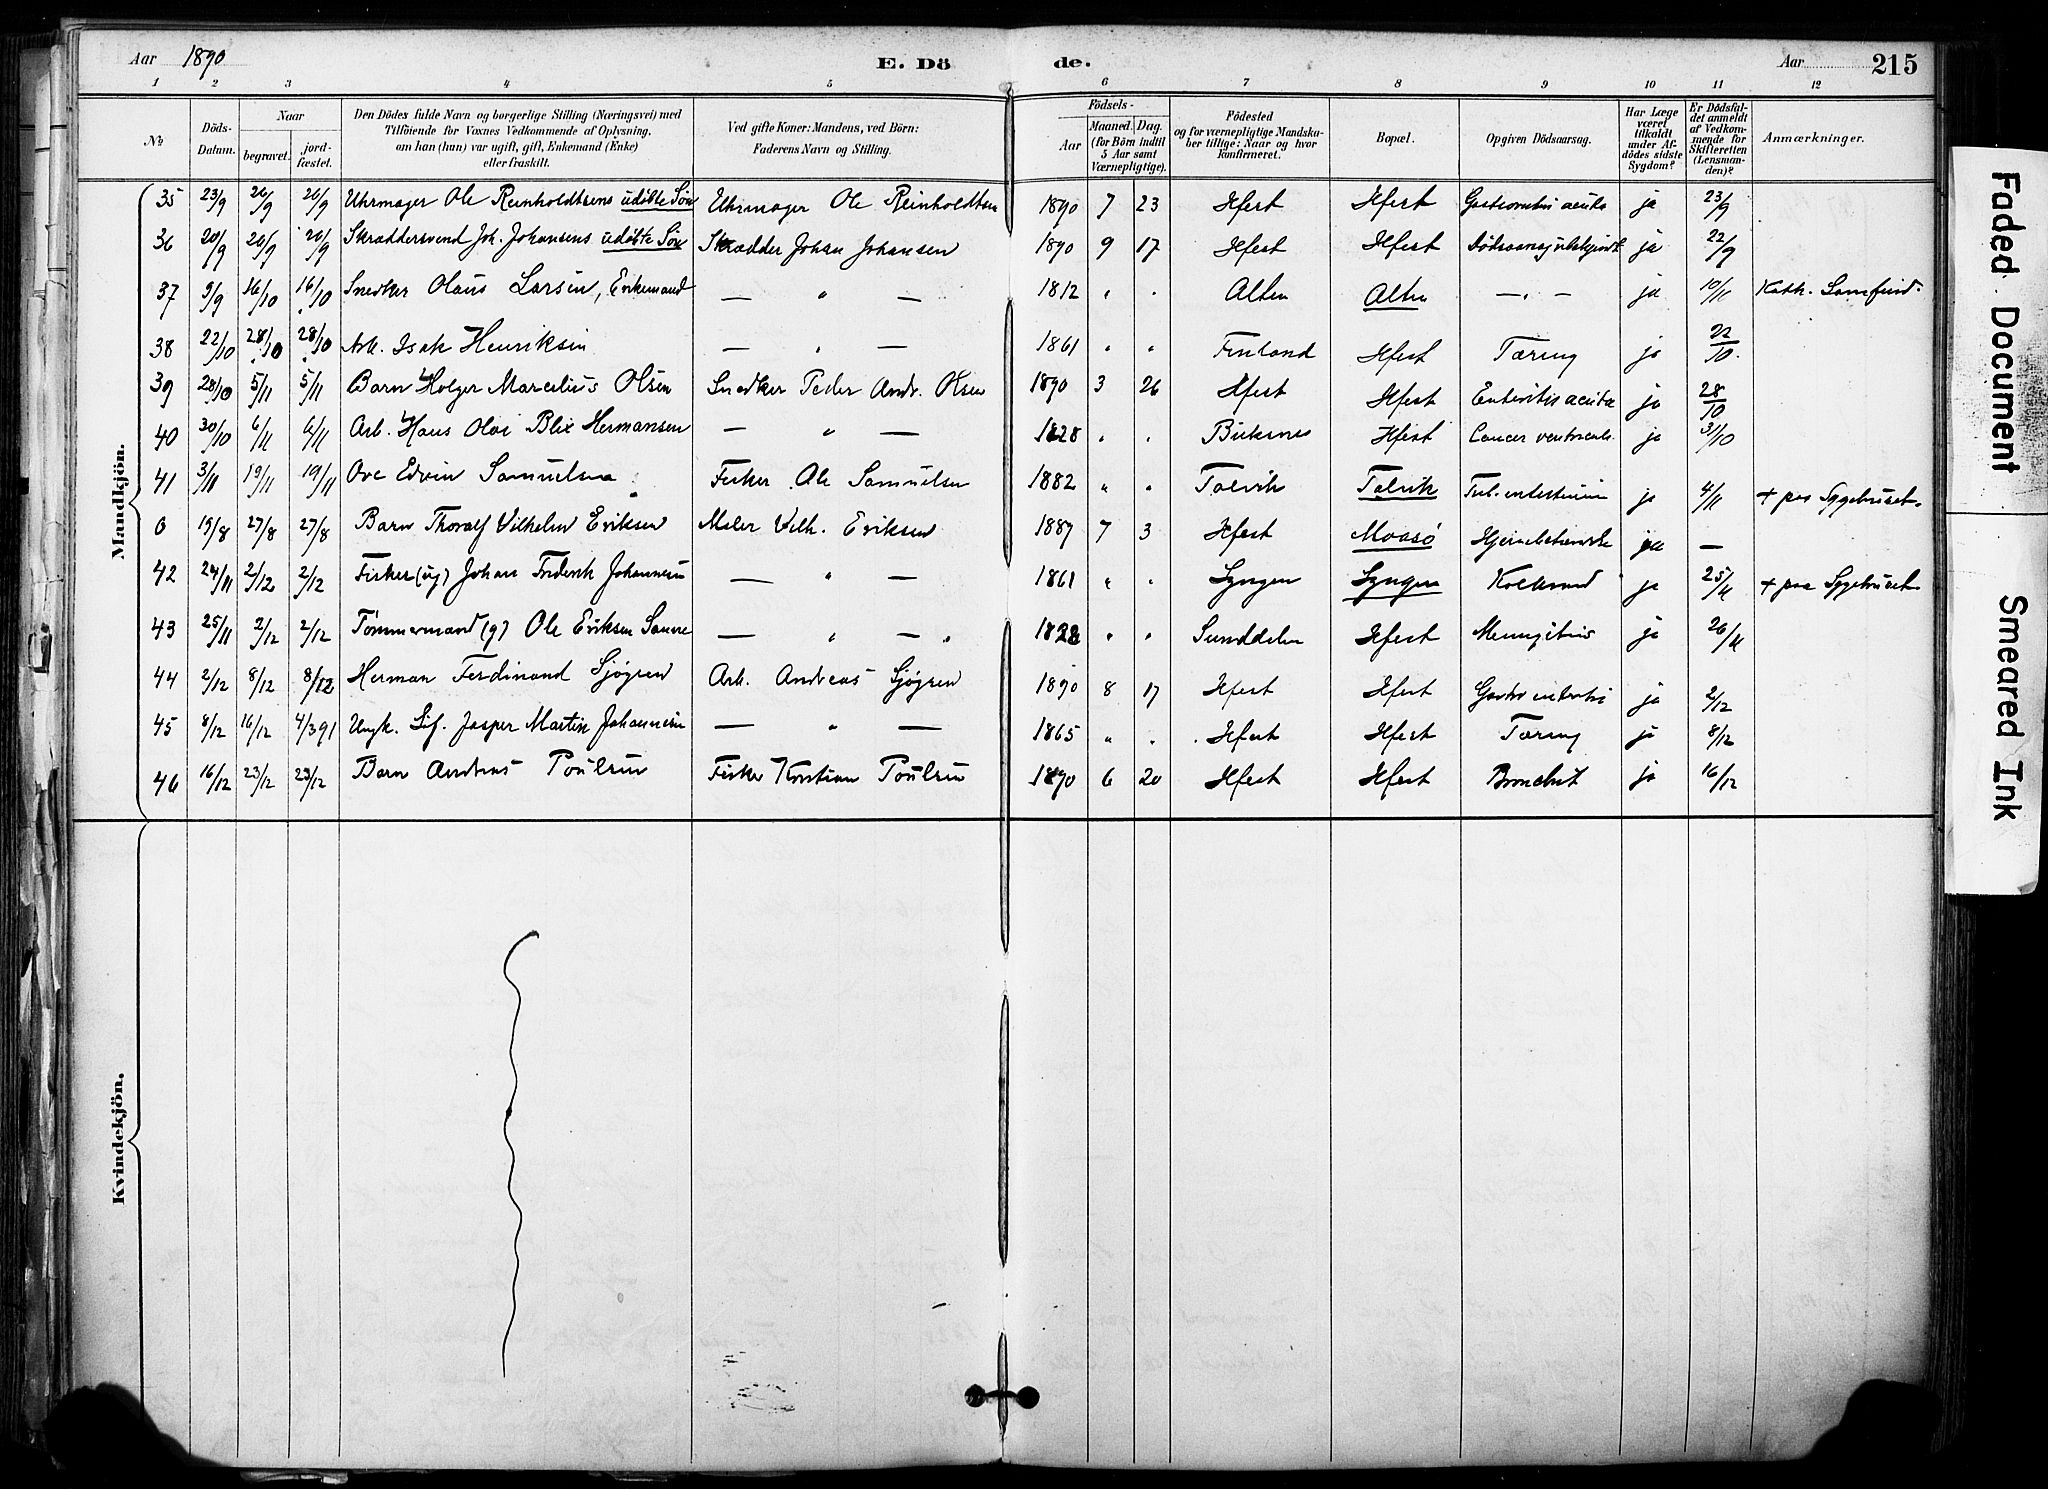 Aar 1890 E. Dö de. Aar 215
1 2 3 4 5 6 7 8 9 10 11 12
No.
Döds-Datum.
Naar
begravet. jordfæstet.
Den Dödes fulde Navn og borgerlige Stilling (Næringsvei) med
Tilföiende for Voxnes Vedkommende af Oplysning,
om han (hun) var ugift, gift, Enkemand (Enke)
eller fraskilt.
Ved gifte Koner: Mandens, ved Börn:
Faderens Navn og Stilling.
Födsels-
Aar
Maaned. Dag.
(for Börn indtil
5 Aar samt
Værnepligtige).
Födested
og for værnepligtige Mandskaber tillige: Naar og hvor
konfirmeret.
Bopæl.
Opgiven Dödsaarsag.
Har Læge
været
tilkaldt
under Afdödes sidste
Sygdom?
Er Dödsfaldet anmeldt
af Vedkommende for
Skifteretten
(Lensmanden)?
Anmærkninger.
Mandkjön.
35 23/9 26/9 26/9 Uhrmager Ole Reinholdtsens udöbte Sön Uhrmager Ole Reinholdtsen 1890 7 23 Hfest Hfest acuta ja 23/9
36 20/9 26/9 26/9 Skræddersvend Joh. Johansens udöbte Sön Skrædder Johan Johansen 1890 9 17 Hfest Hfest ja 22/9
37 9/9 16/10 16/10 Snedker Olaus Larsen, Enkemand — " — 1812 " " Alten Alten — " — ja 10/11 Kath. Samfund.
38 22/10 28/10 28/10 Arb. Isak Henriksen — " — 1861 " " Finland Hfest Tæring ja 22/10.
39 28/10 5/11 5/11 Barn Holger Marcelius Olsen Snedker Peder Andr. Olsen 1890 3 26 Hfest Hfest Enteritis acuta ja 28/10
40 30/10 6/11 6/11 Arb. Hans Olai Blix Hermansen — " — 1828 " " Buksnes Hfest Cancer ventricul. ja 3/10
41 3/11 19/11 19/11 Ove Edvin Samuelsen Fisker Ole Samuelsen 1882 " " Talvik Talvik Tub. ja 4/11 + paa Sygehuset.
0 19/8 27/8 27/8 Barn Thoralf Vilhelm Eriksen Maler Vilh. Eriksen 1887 7 3 Hfest Maasö Hjernebetændelse ja —
42 24/11 2/12 2/12 Fisker (ug) Johan Fredrik Johannesen — " — 1861 " " Lyngen Lyngen Koldbrand ja 25/11 + paa Sygehuset
43 25/11 2/12 2/12 Tömmermand (g) Ole Eriksen — " — " 1828 " " Hfest Meningitis ja 26/11
44 2/12 8/12 8/12 Herman Ferdinand Sjøgren Arb. Andreas Sjøgren 1890 8 17 Hfest Hfest ja 2/12
45 8/12 16/12 4/3 91 Ungk. Jasper Martin Johannesen — " — 1865 " " Hfest Hfest Tæring ja 8/12
46 16/12 23/12 23/12 Barn Andreas Poulsen Fisker Kristian Poulsen 1890 6 20 Hfest Hfest Bronchit ja 16/12
Kvindekjön.
Faded Document
Smeared Ink